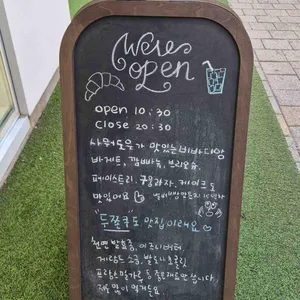 We're
open
open 10:30
close 20:30
사워도우가 맛있는 비바다방
바게트, 깜빠뉴, 브리오슈,
페이스트리, 구움과자, 케이크도
맛있어요
"두쫀쿠"도 맛집이래요
천연 발효종, 이즈니버터,
게랑드 소금, 발로나초콜릿
프랑스밀가루 등 좋은재료만 씁니다.